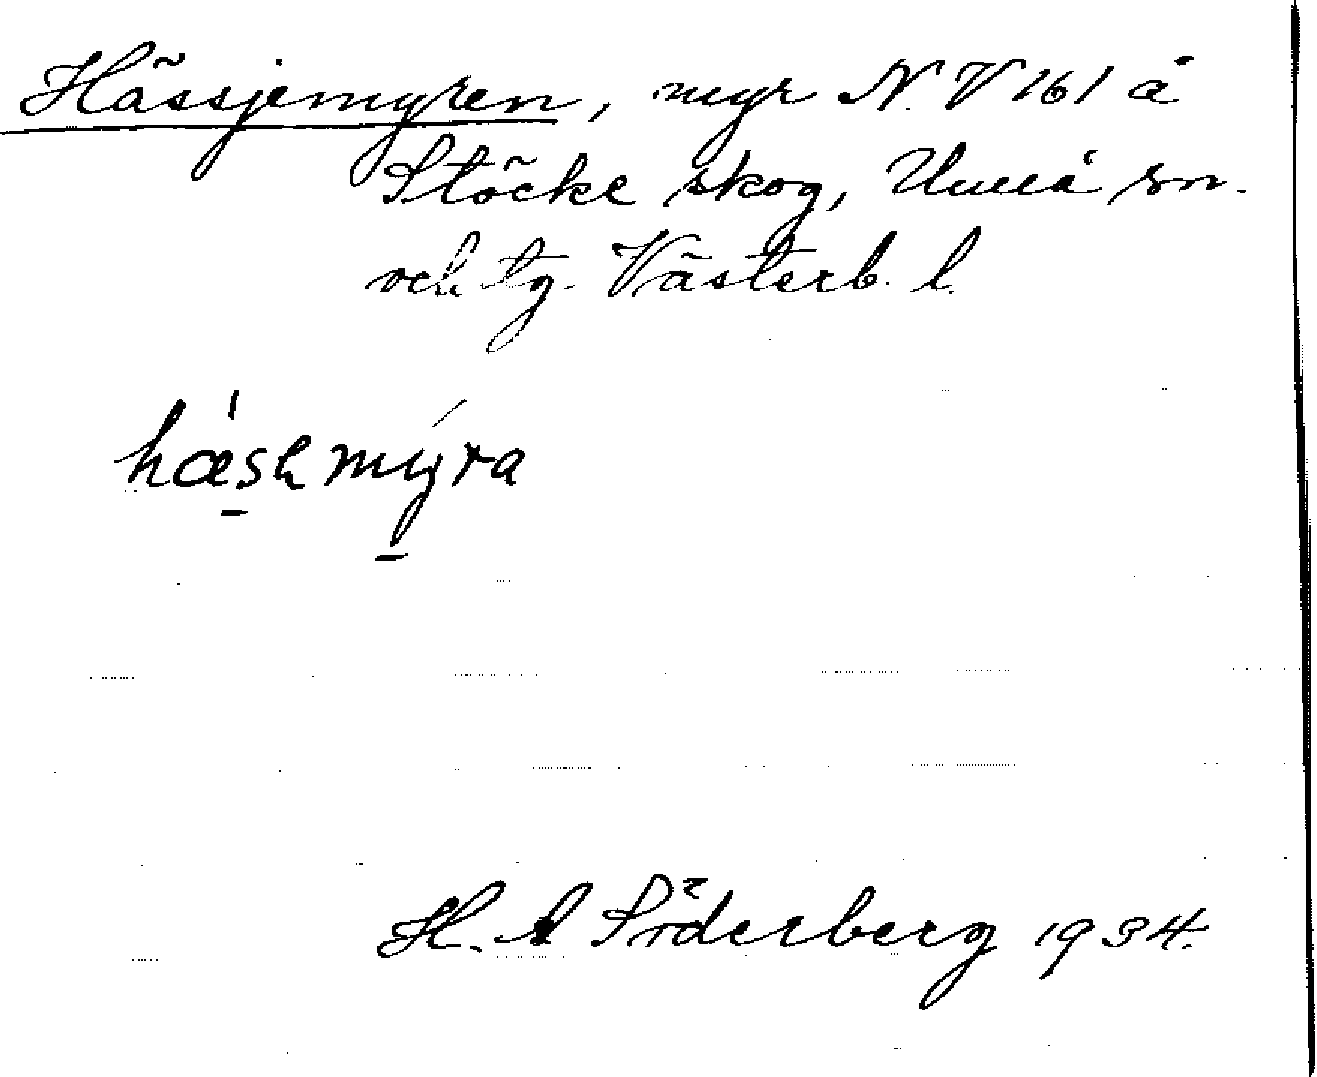 Hässjemyren, myr N. V 161 å
Stöcke skog, Umeå sn.
och tg. Västerb. l.
hæshmýra
H. A Söderberg 1934.